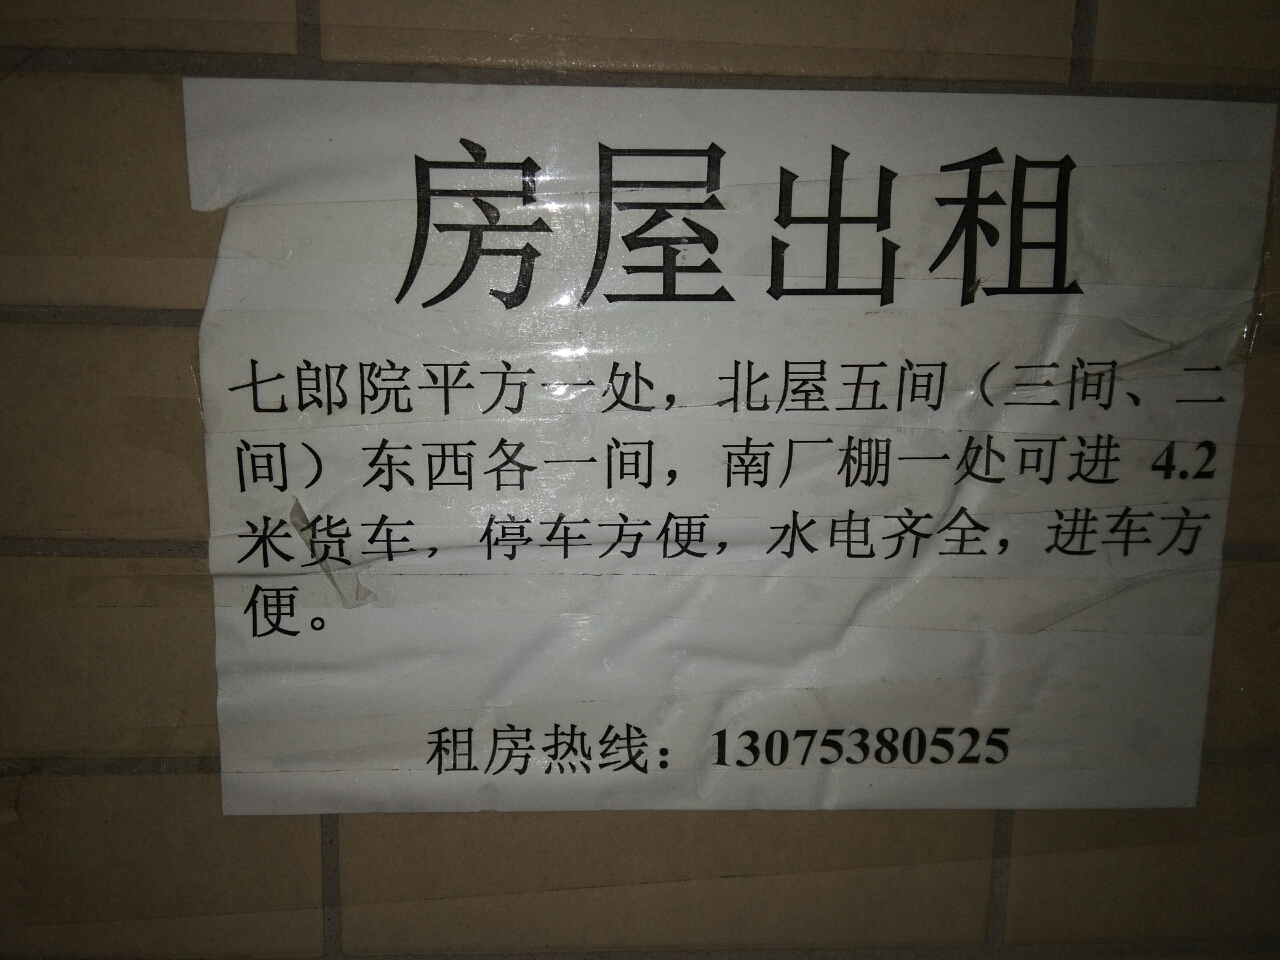 房屋出租
七郎院平方一处，北屋五间（三间、二
间）东西各一间，南厂棚一处可进 4.2
米货车，停车方便，水电齐全，进车方
便。
租房热线：13075380525